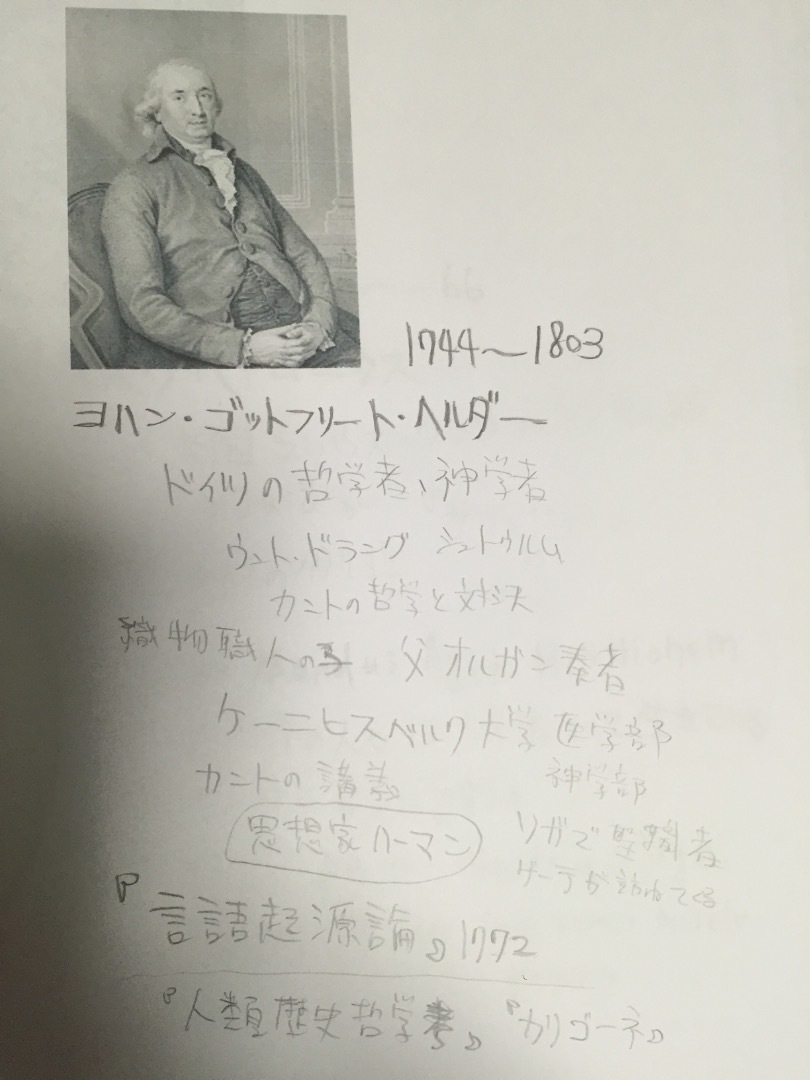 1744〜1803
ヨハン・ゴットフリート・ヘルダー
ドイツの哲学者、神学者
ウント・ドラング シュトゥルム
カントの哲学と対決
織物職人の子 父オルガン奏者
ケーニヒスベルク大学 医学部
カントの講義 神学部
思想家ハーマン リガで聖職者
ゲーテが訪ねてくる
『言語起源論』1772
『人類歴史哲学考』『カリゴーネ』